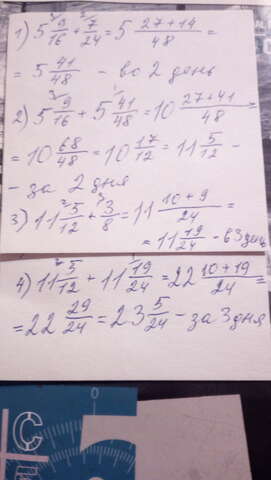 1) 5 9/16 + 7/24 = 5 (27+14)/48 =
= 5 41/48 - во 2 день
2) 5 9/16 + 5 41/48 = 10 (27+41)/48 =
= 10 68/48 = 10 17/12 = 11 5/12 -
- за 2 дня
3) 11 5/12 + 3/8 = 11 (10+9)/24 =
= 11 19/24 - в 3 день
4) 11 5/12 + 11 19/24 = 22 (10+19)/24 =
= 22 29/24 = 23 5/24 - за 3 дня
0